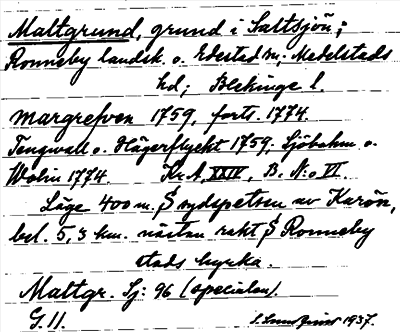 Maltgrund, grund i Saltsjön;
Ronneby landsk. o. Edestad sn, Medelstads
hd; Blekinge l.
Margrefven 1759, forts. 1774.
Tengwall o. Hägerflycht 1759. Sjöbohm o.
Wolin 1774. Kr. A, XXIX, B. N:o VI.
Läge 400 m. S sydspetsen av Karön,
bel. 5,3 km. nästan rakt S Ronneby
stads kyrka.
Maltgr. Sj: 96 (specialen).
G. 11. 1937.